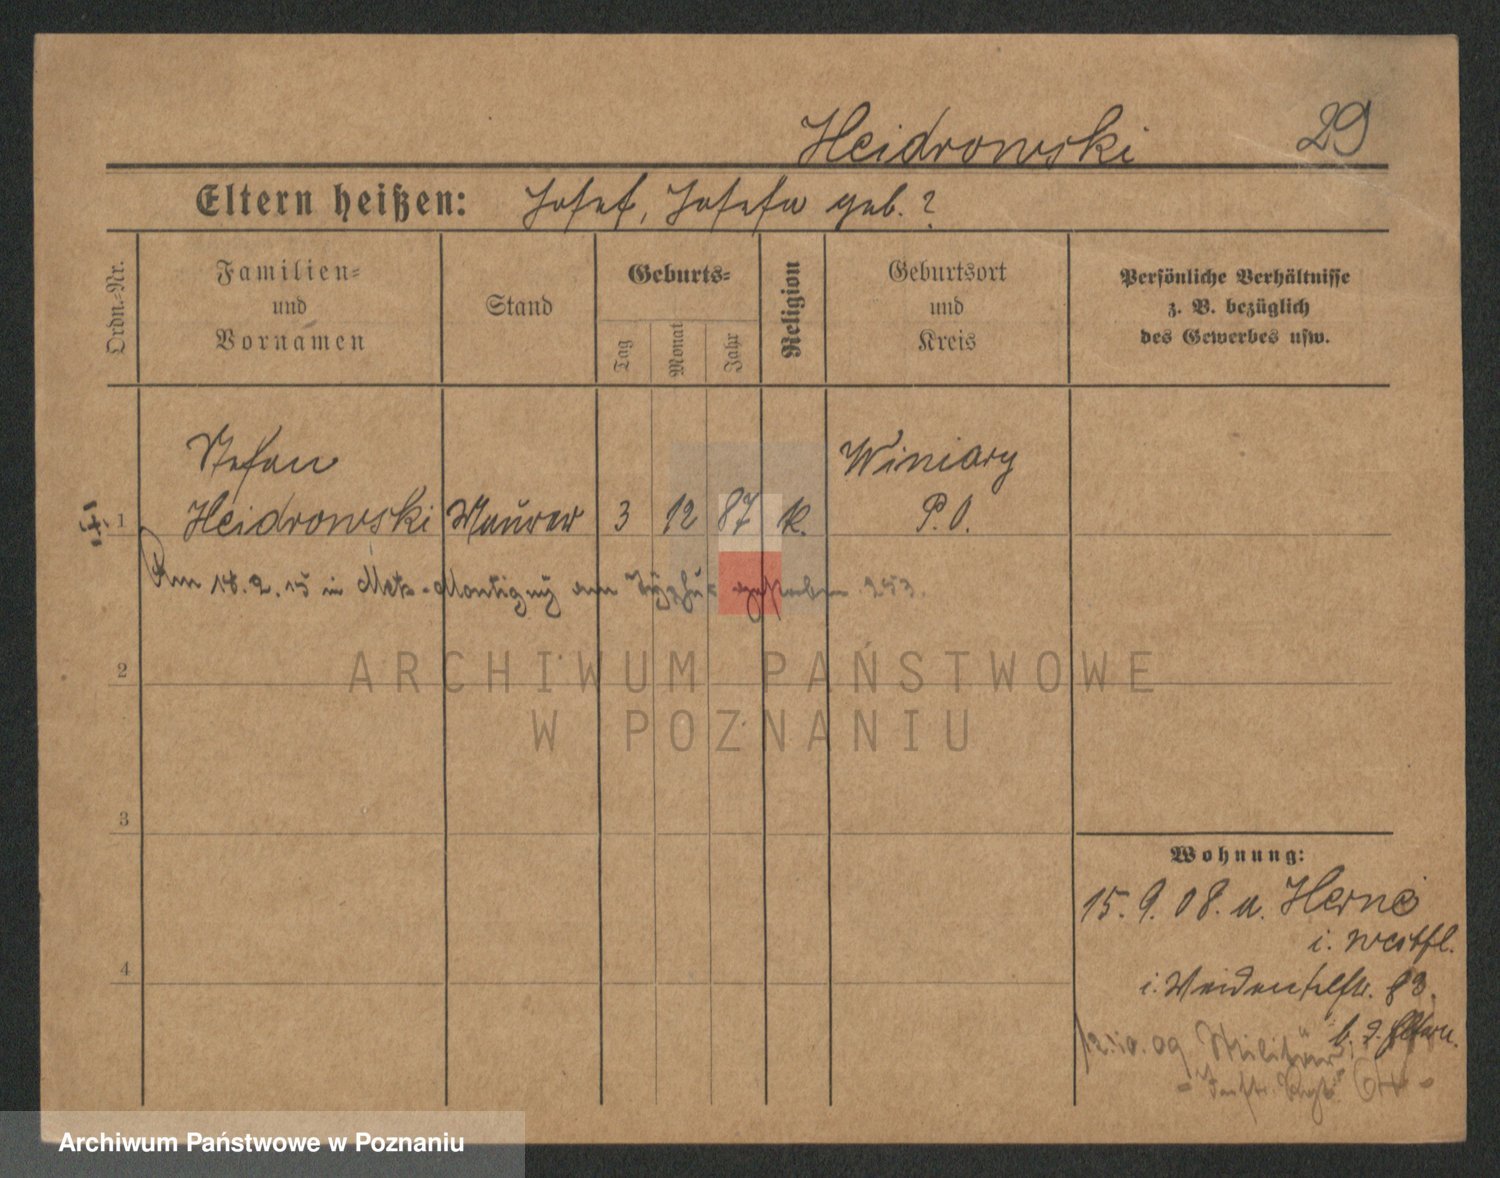 Heidrowski 29
Eltern heißen: Josef, Josefa geb. ?
Ordn.-Nr.
Familien-
und
Vornamen
Stand
Geburts-
Tag
Monat
Jahr
Religion
Geburtsort
und
Kreis
Persönliche Verhältnisse
z. B. bezüglich
des Gewerbes usw.
Stefan
Winiary
1 Heidrowski Maurer 3 12 87 k. P. O.
Am 18.2.15 in Metz-Montigny am Typhus gestorben
ARCHIWUM PAŃSTWOWE
W POZNANIU
2
3
4
Wohnung:
15.9.08. a. Herne
i. Westfl.
i. Weidenfelstr. 83.
b. d. Eltern.
12.10.09 Militär
Archiwum Państwowe w Poznaniu